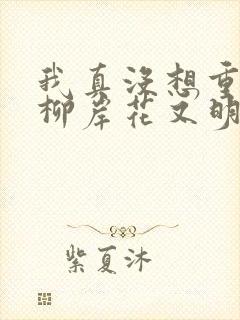 我真没想重
柳岸花又明
紫夏沐